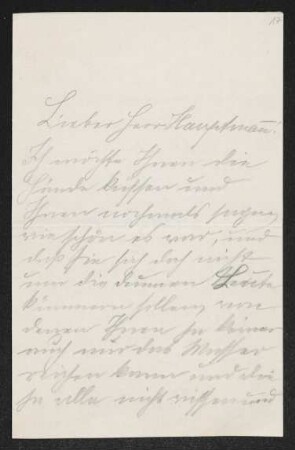 Lieber Herr Hauptmann!
Ich möchte Ihnen die
Hände küssen und
Ihnen nochmals sagen,
wie schön es war, und
daß Sie sich doch nicht
um die dummen Leute
kümmern sollen, von
denen Ihnen ja keiner
auch nur das Wasser
reichen kann und die
ja alle nicht wissen und